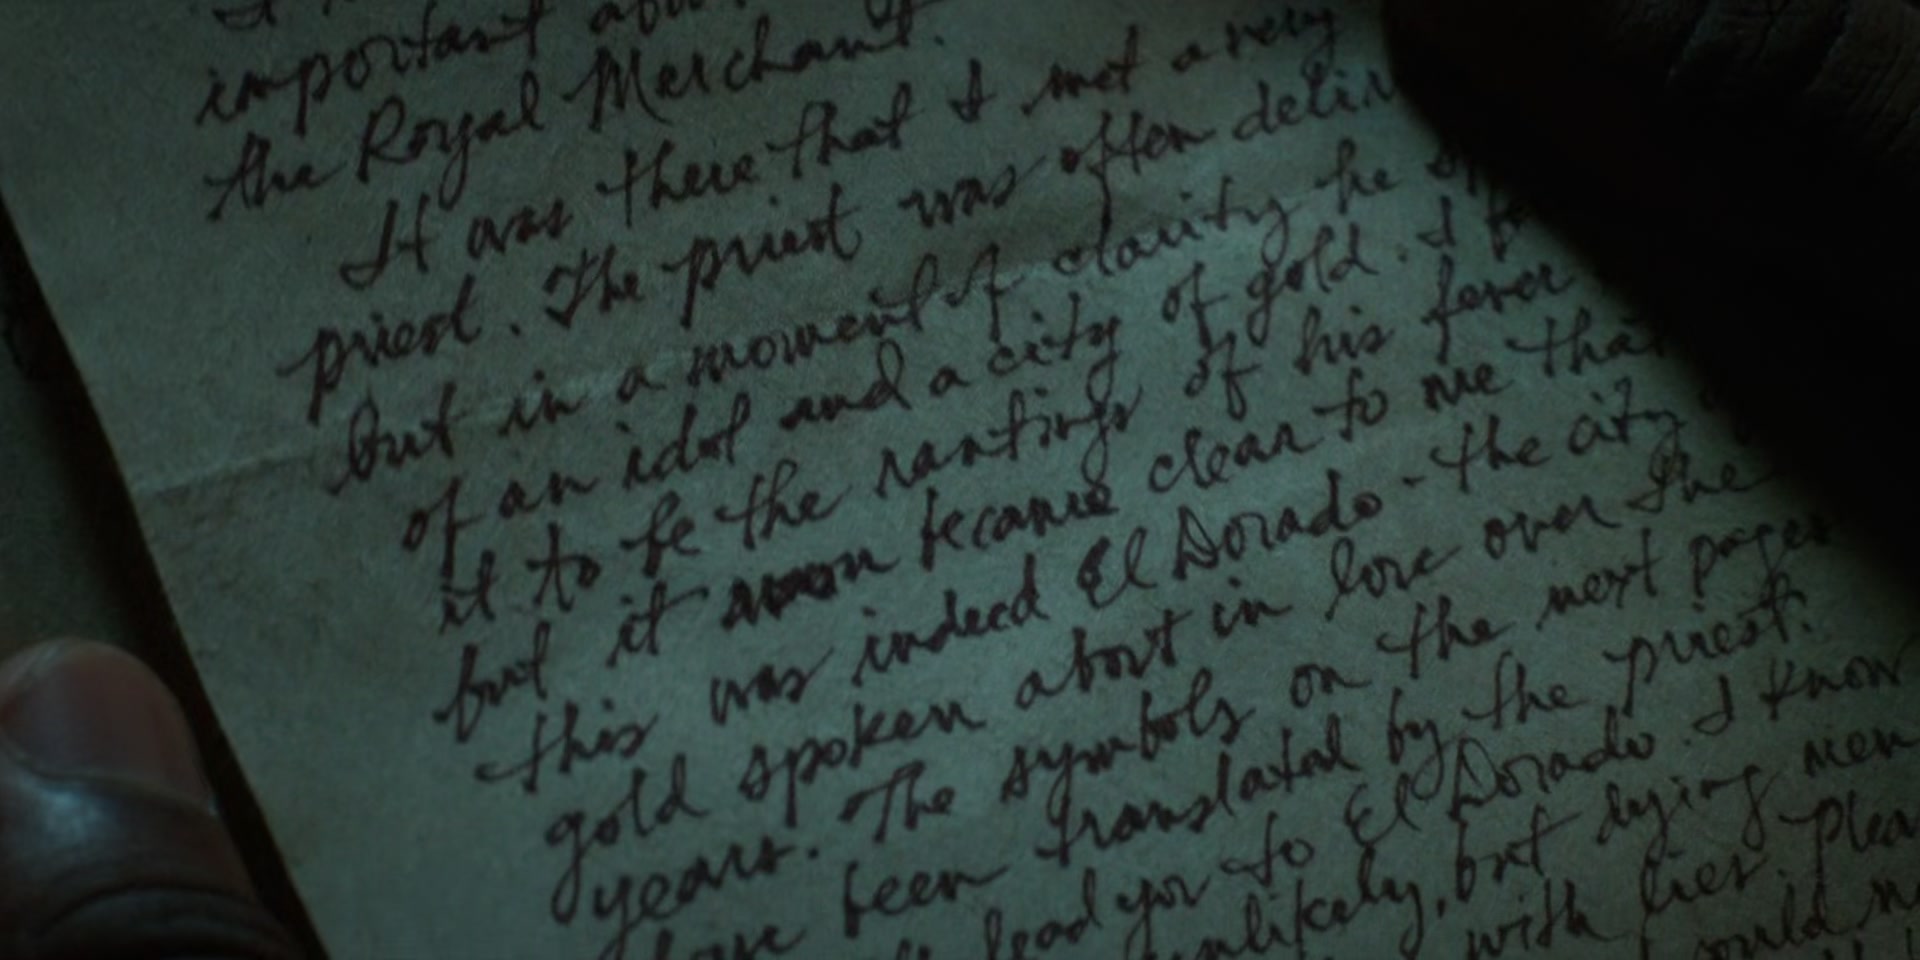 important
the Royal Merchant.
It was there that I met a very
priest. The priest was often
but in a moment of clarity he
of an idol and a city of gold. I
it to be the rantings of his fever
but it soon became clear to me that
this was indeed El Dorado - the city
gold spoken about in lore over the
years. The symbols on the next pages
have been translated by the priest.
lead you to El Dorado. I know
unlikely, but dying men
with lies.
could